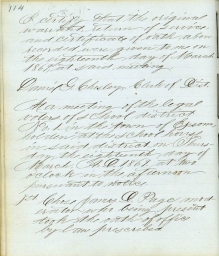 114
I certify that the original
warrant, return of service
and certificate of oath above
recorded were given to me on
the eighteenth day of March
1869 at said meeting
Daniel G Clerk of Dist.
At a meeting of the legal
voters of school district
No 1 in the town of
holden at the school house
in said district on Thurs-
day the eighteenth day of
March A D 1869 at two
o'clock in the afternoon
pursuant to notice
1st Chose James D Page mod-
erator who being present
took the oath of office
by law prescribed